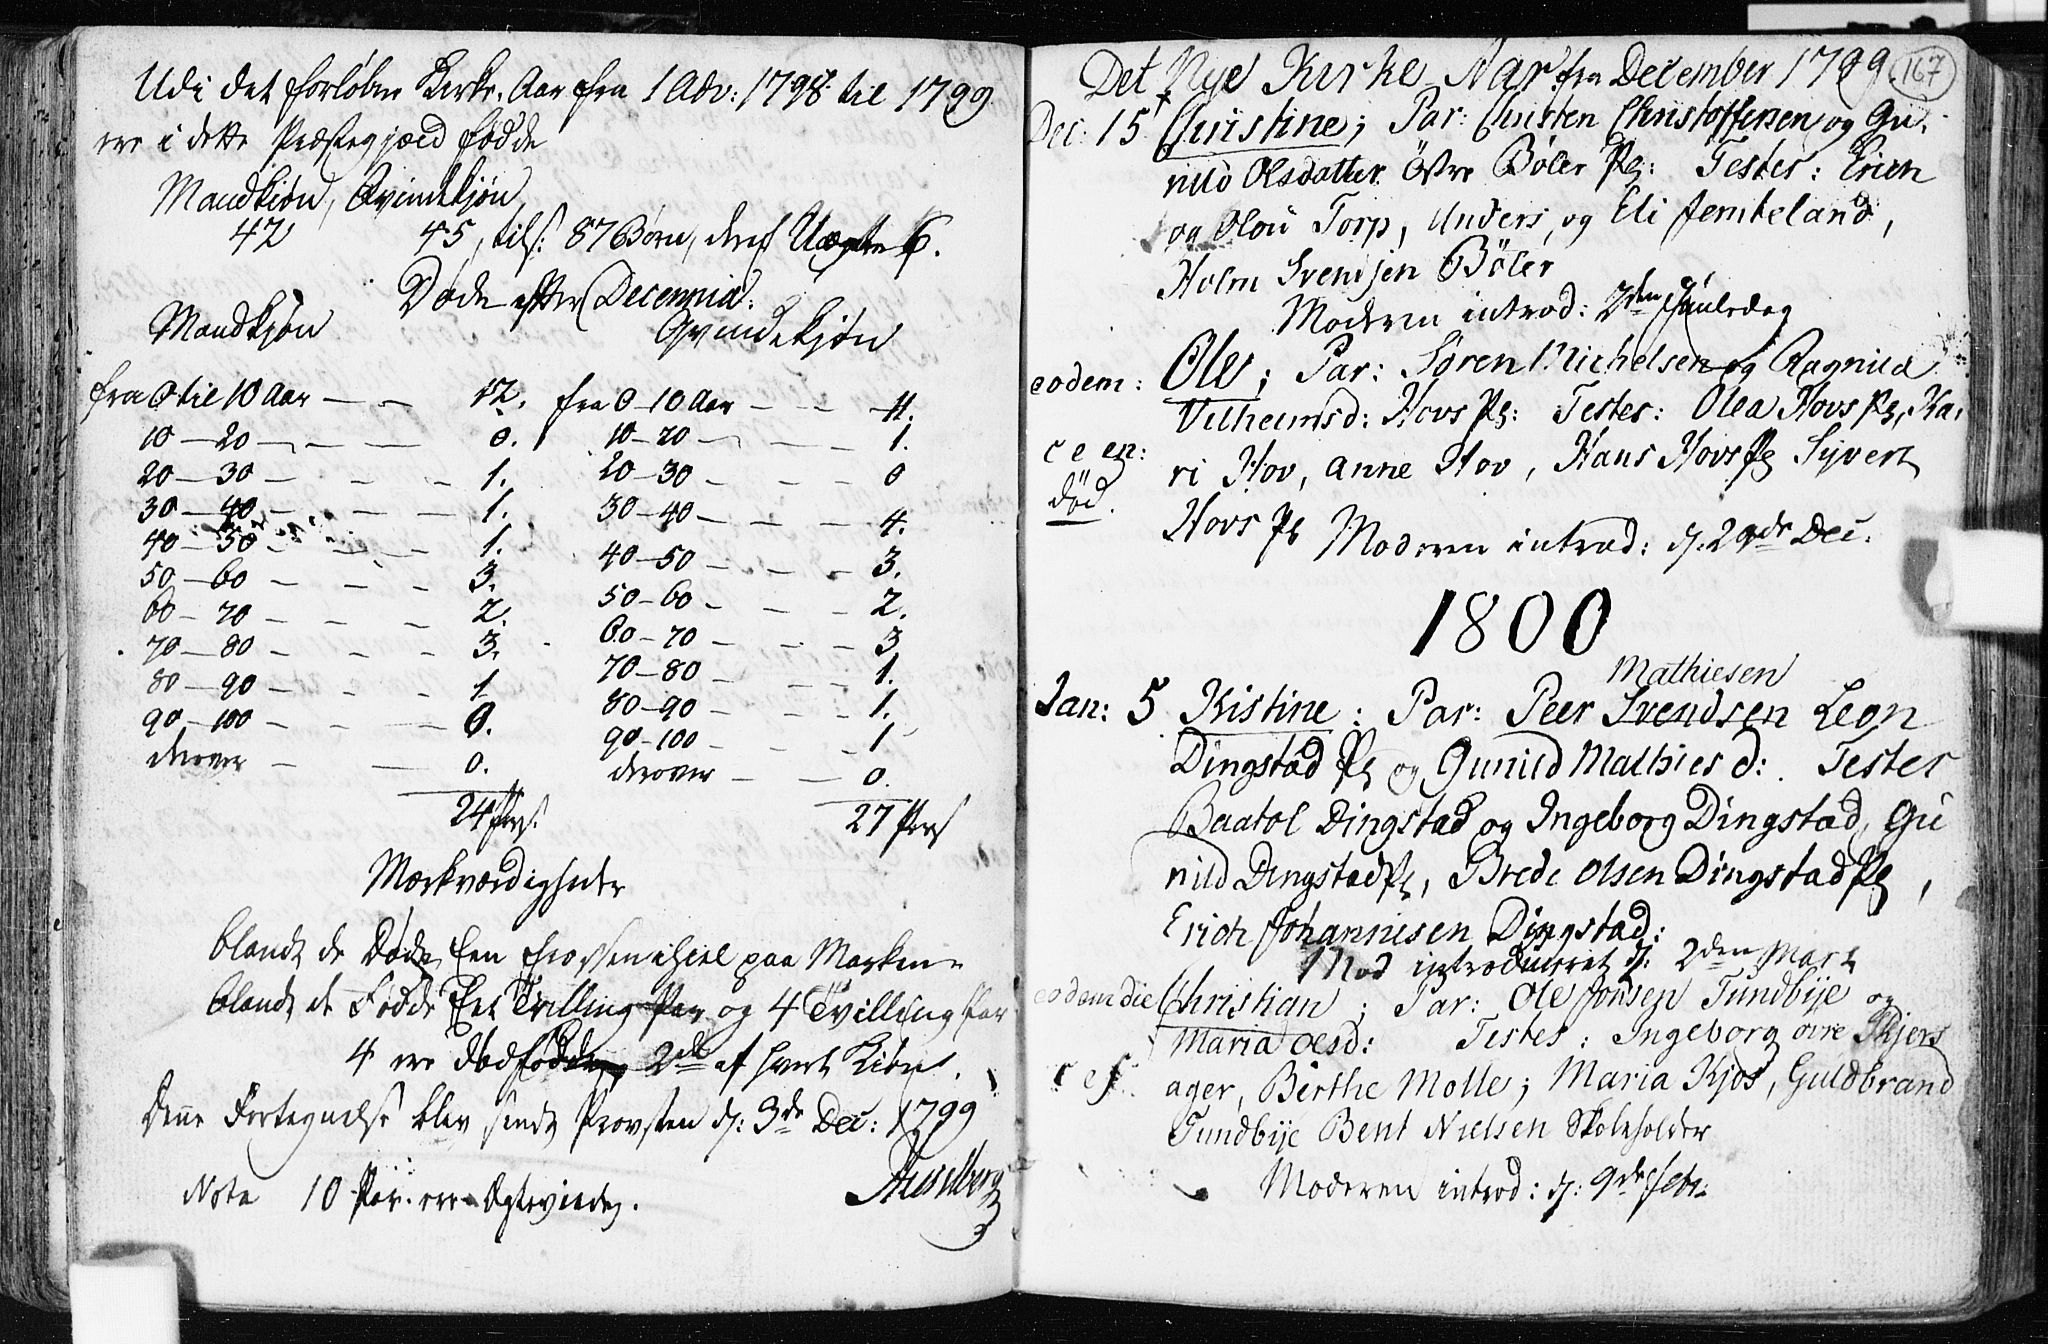 Udi det forløbne Kirke-Aar fra 1 Adv: 1798 til 1799
ere i dette Præstegjæld fødde
Mandkiøn, Qvindekjøn
42 45, tils: 87 Børn, deraf Uægte 6.
Døde efter Decennia:
Mandkjøn Qvindekjøn
fra 0 til 10 Aar — — 12. fra 0-10 Aar — — 11.
10 — 20 — — — 0. 10-20 — — — 1.
20 — 30 — — — 1. 20-30 — — — 0
30 — 40 — — — 1. 30-40 — — — 4.
40 — 50 — — — 1. 40-50 — — — 3.
50 — 60 — — — 3. 50-60 — — — 2.
60 — 70 — — — 2. 60-70 — — — 3
70 — 80 — — — 3. 70-80 — — — 1.
80 — 90 — — — 1 80-90 — — — 1.
90 — 100 — — — 0. 90-100 — — — 1
derover — — 0. derover — — 0.
24 Pers: 27 Pers
Mærkværdigheder
blandt de Døde Een frossen ihiel paa Marken
blandt de Fødde Eet Trilling Par og 4 Tvilling Par
4 ere dødfødde, 2de af hvert Kiøn.
Denne Fortegnelse blev sendt Provsten d: 3de Dec: 1799
Nota 10 Par ere Ægteviede.
167
Det Nye Kirke Aar fra December 1799
Dec: 15 Christine; Par: Christen Christoffersen og Gu-
nild Olsdatter Östre Böler Pl: Testes: Erich
og Olou Torp, Anders, og Eli Jembeland,
Holm Svensjen Böler
Moderen introd: 2den Juuledag
eodem: Ole; Par: Sören Michelsen og Ragnild
Vilheimsd: Hovs Pl: Testes: Olea Hovs Pl, Ka-
död. ri Hov, Anne Hov, Hans Hovs Pl Syvert
Hovs Pl Moderen introd: d: 29de Dec:
1800
Mathiesen
Jan: 5 Kistine: Par: Peer Svendsen Leon
Dingstad Pl og Gunild Mathiesd: Testes
Baatol Dingstad og Ingeborg Dingstad, Gu
nild Dingstad Pl, Brede Olsen Dingstad Pl,
Erich Johannesen Dingstad:
Mod introduceret d: 2den Mart
eodem die Christian; Par: Ole Jonsen Tundbye og
Maria Olsd: Testes: Ingeborg övre Skjers
ager, Birthe Molle; Maria Kjos, Guldbrand
Tundbye Bent Nielsen Skoleholder
Moderen introd: d: 9de Febr: